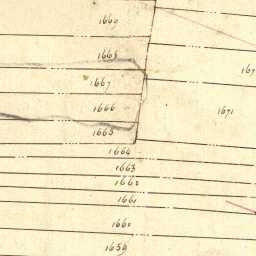 1668
167
1667
1666
1671
1665
1664
1663
1662
1661
1660
1659